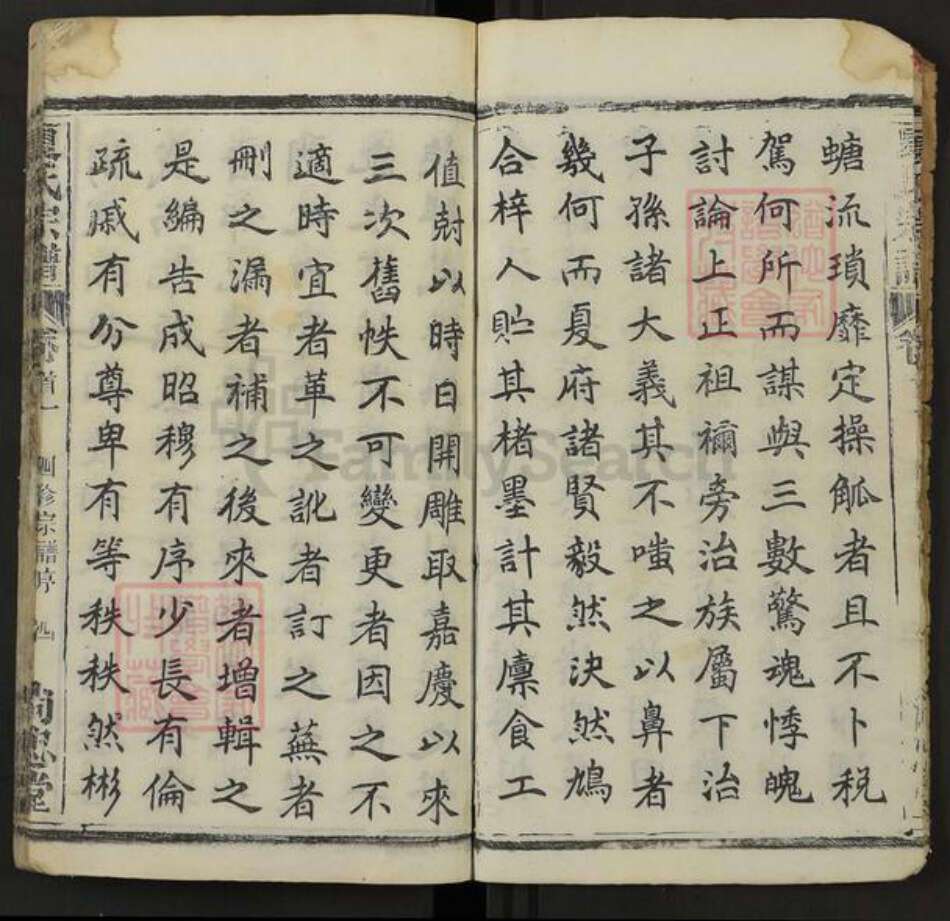 螗流瑣靡定操觚者且不卜稅
駕何所而謀與三數驚魂悸魄
討論上正祖禰旁治族屬下治
子孫諸大義其不嗤之以鼻者
幾何而夏府諸賢毅然決然鳩
合梓人貯其楮墨計其廩食工
值尅以時日開雕取嘉慶以來
三次舊帙不可變更者因之不
適時宜者革之訛者訂之蕪者
刪之漏者補之後來者增輯之
是編告成昭穆有序少長有倫
疏戚有分尊卑有等秩秩然彬
夏氏宗譜
卷首一
四修宗譜序
四
尚忠堂
FamilySearch